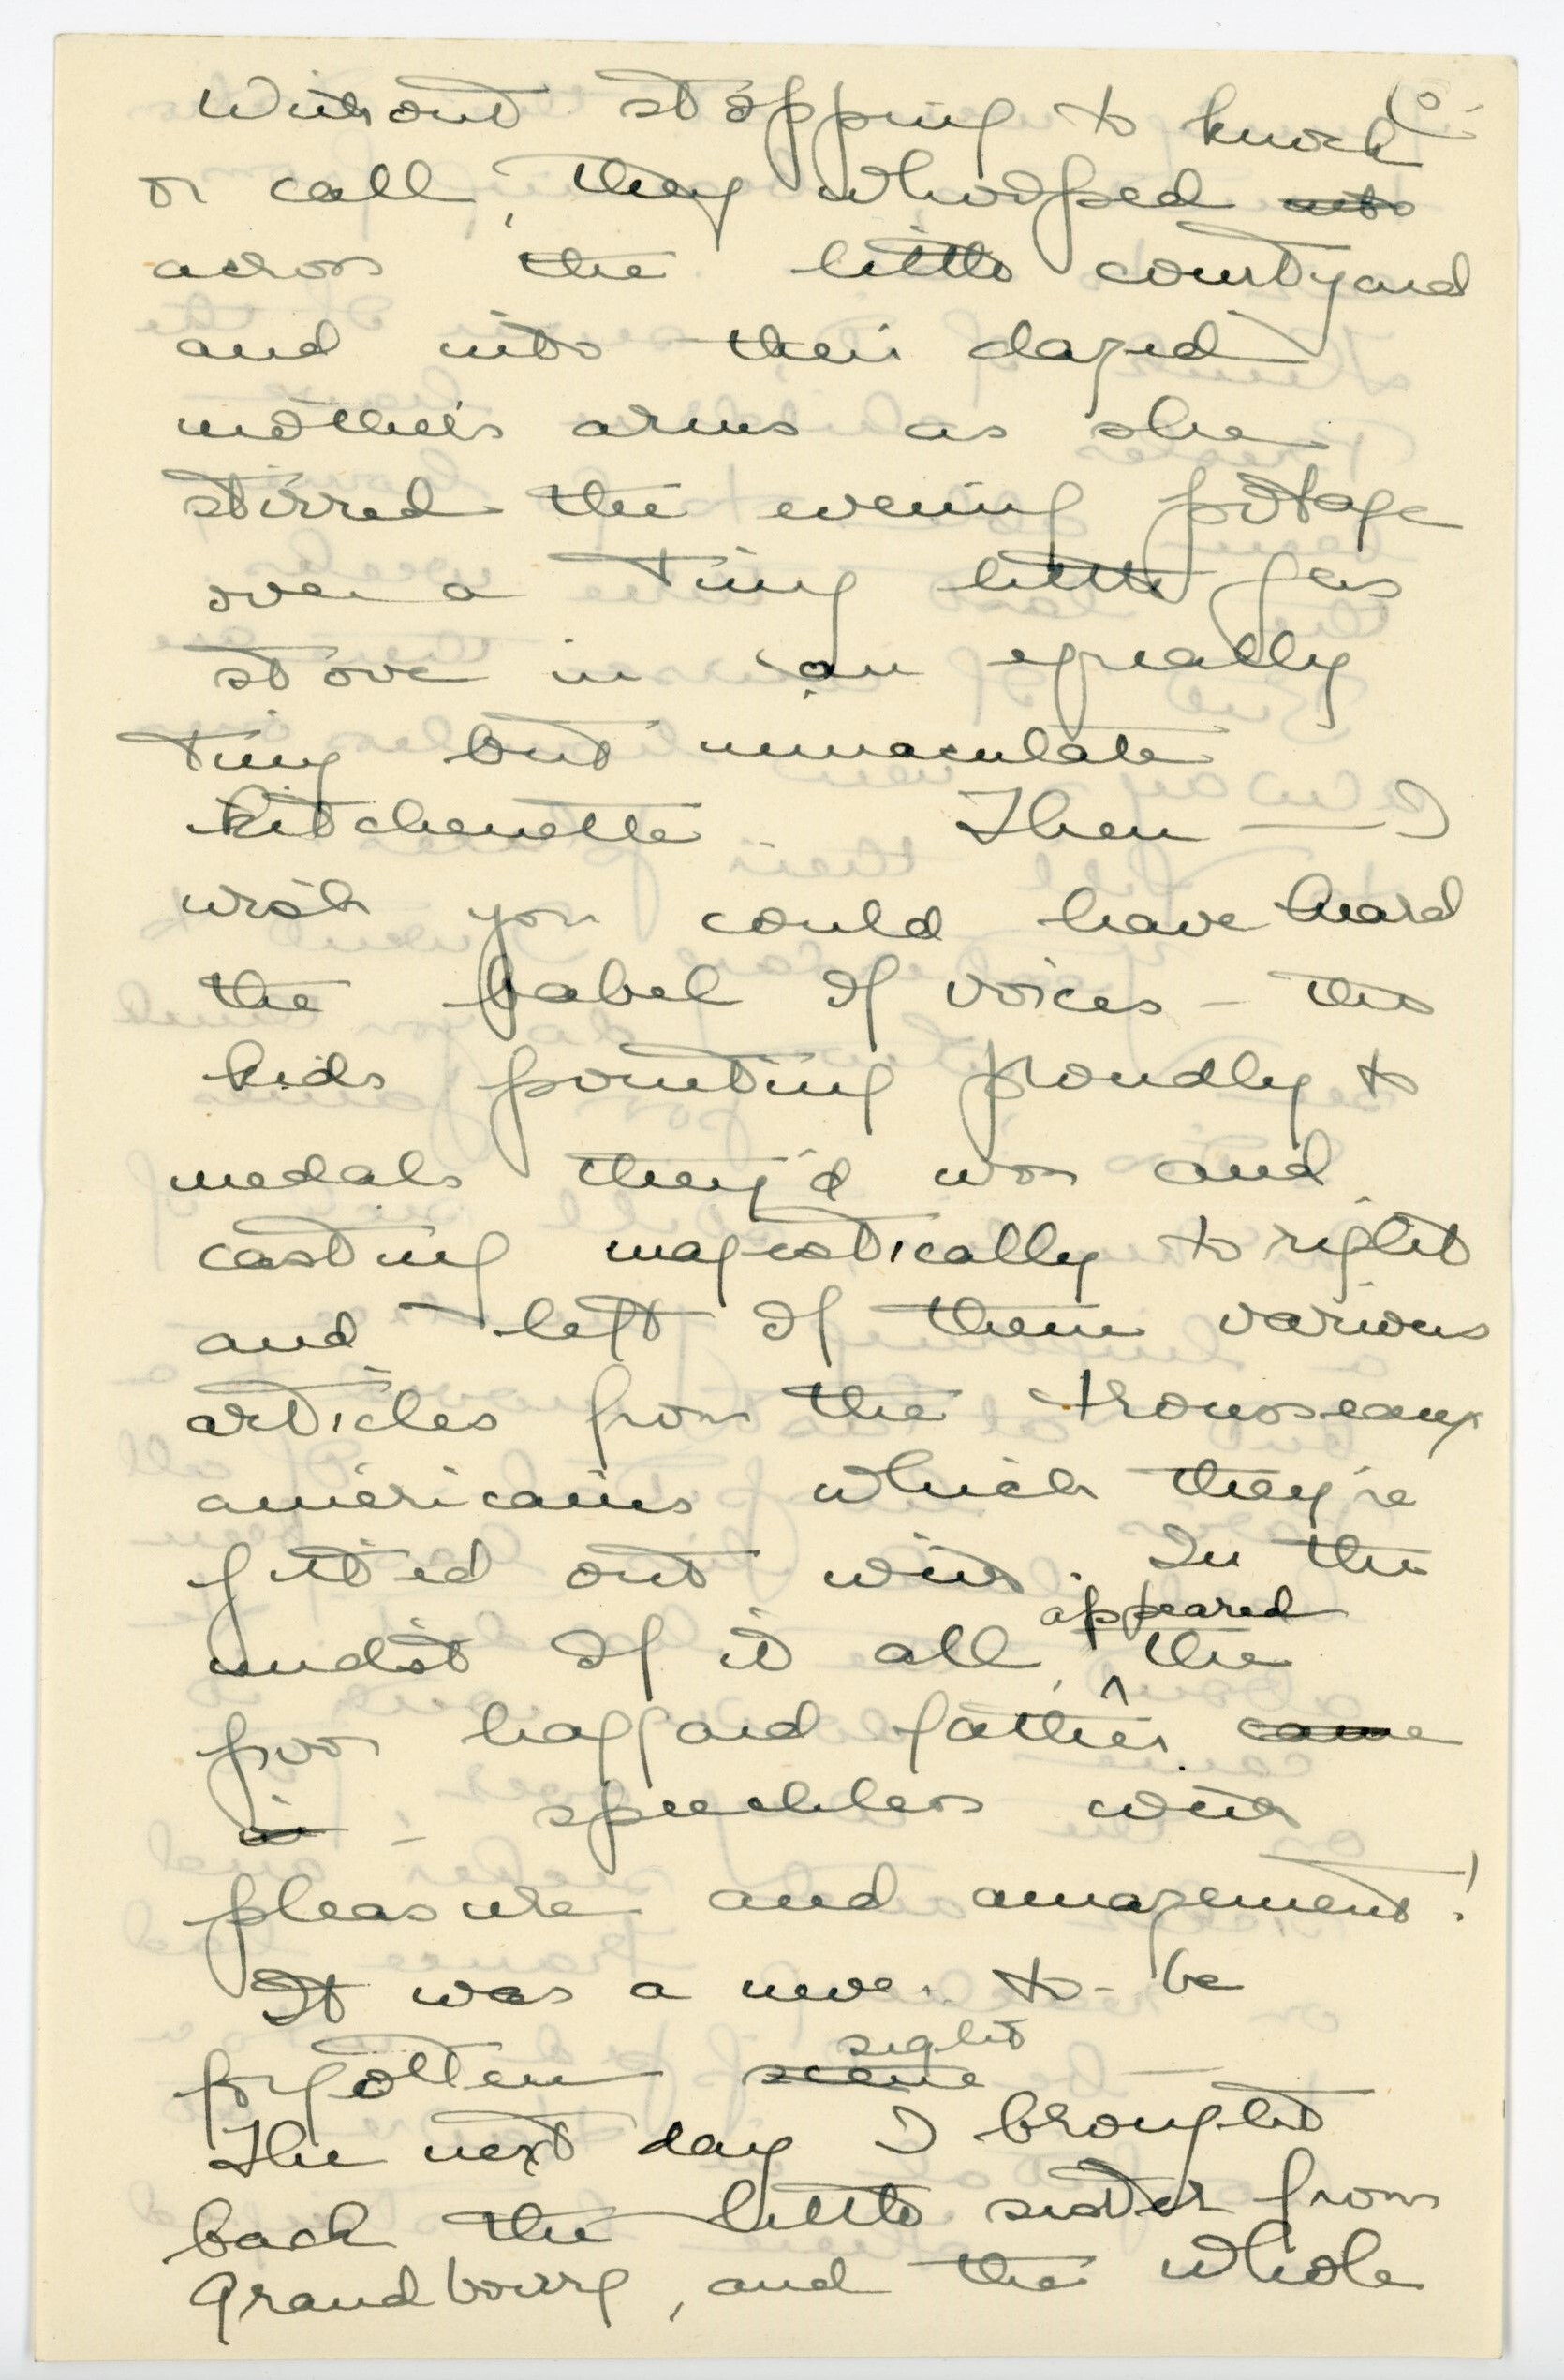 Without stopping to knock
or call, they whooped ~~into~~
across the little courtyard
and into their dazed
mother's arms as she
stirred the evening potage
over a tiny little gas
stove in an equally
tiny but immaculate
kitchenette. Then — I
wish you could have heard
the babel of voices – the
kids pointing proudly to
medals they'd won and
casting majestically to right
and left of them various
articles from the trousseaux
americains which they're
fitted out with. In the
appeared
midst of it all, ^ the
poor haggard father. ~~came~~
~~in~~ – speechless with
pleasure and amazement!
It was a never-to-be
sight
forgotten ~~scene~~
The next day I brought
back the little sister from
Grandbourg, and the whole